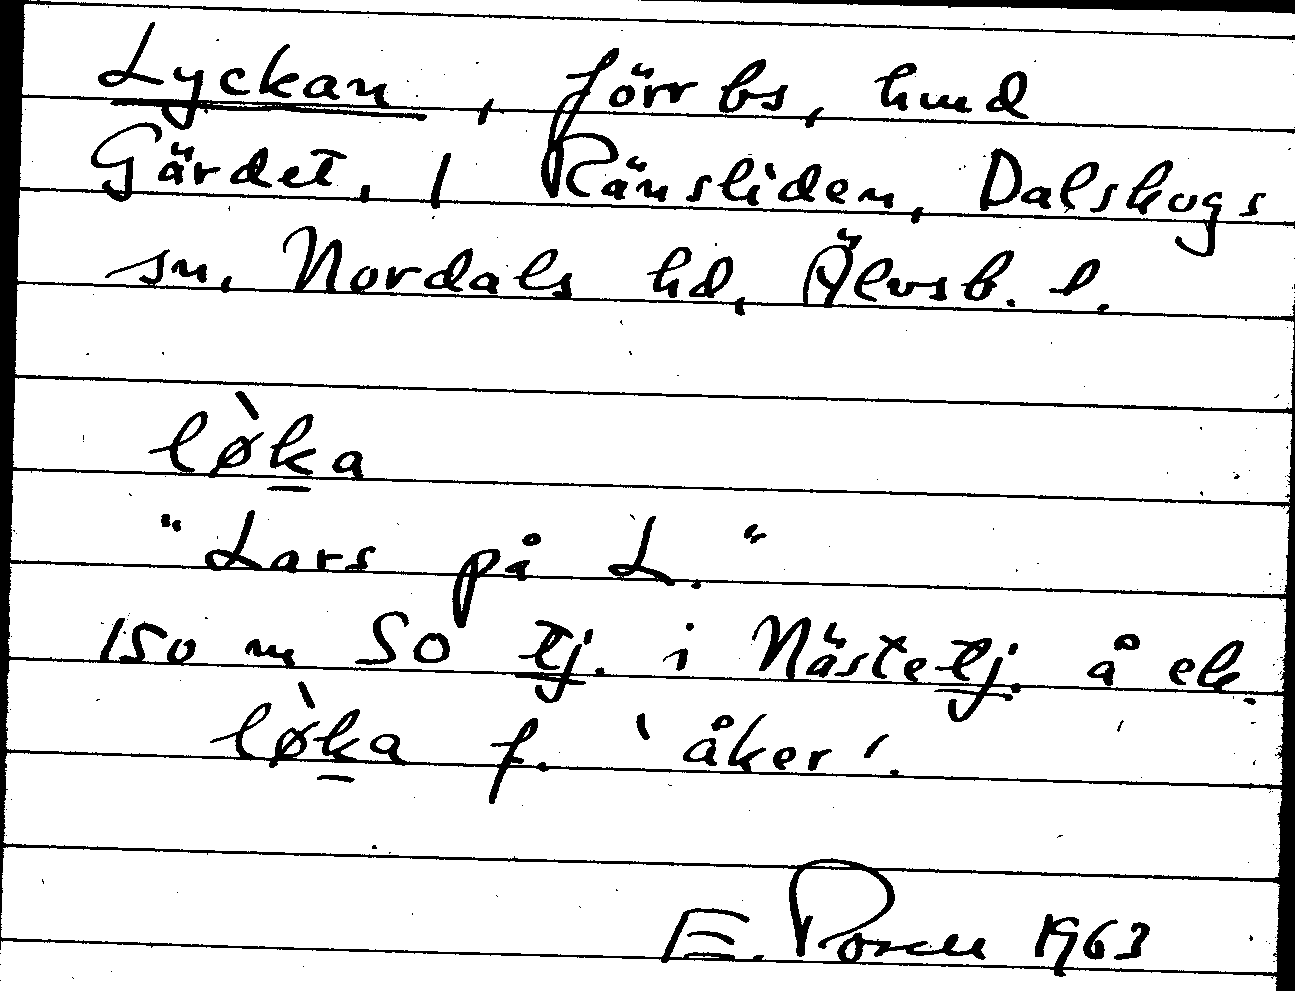 Lyckan, förr bs, hmd
Gärdet, 1 Ränsliden, Dalskogs
sn, Nordals hd, Älvsb. l.
lø̀ka
"Lars på L."
150 m SO tj. i Nästetj. å ek.
lø̀ka f. 'åker'.
E. 1963